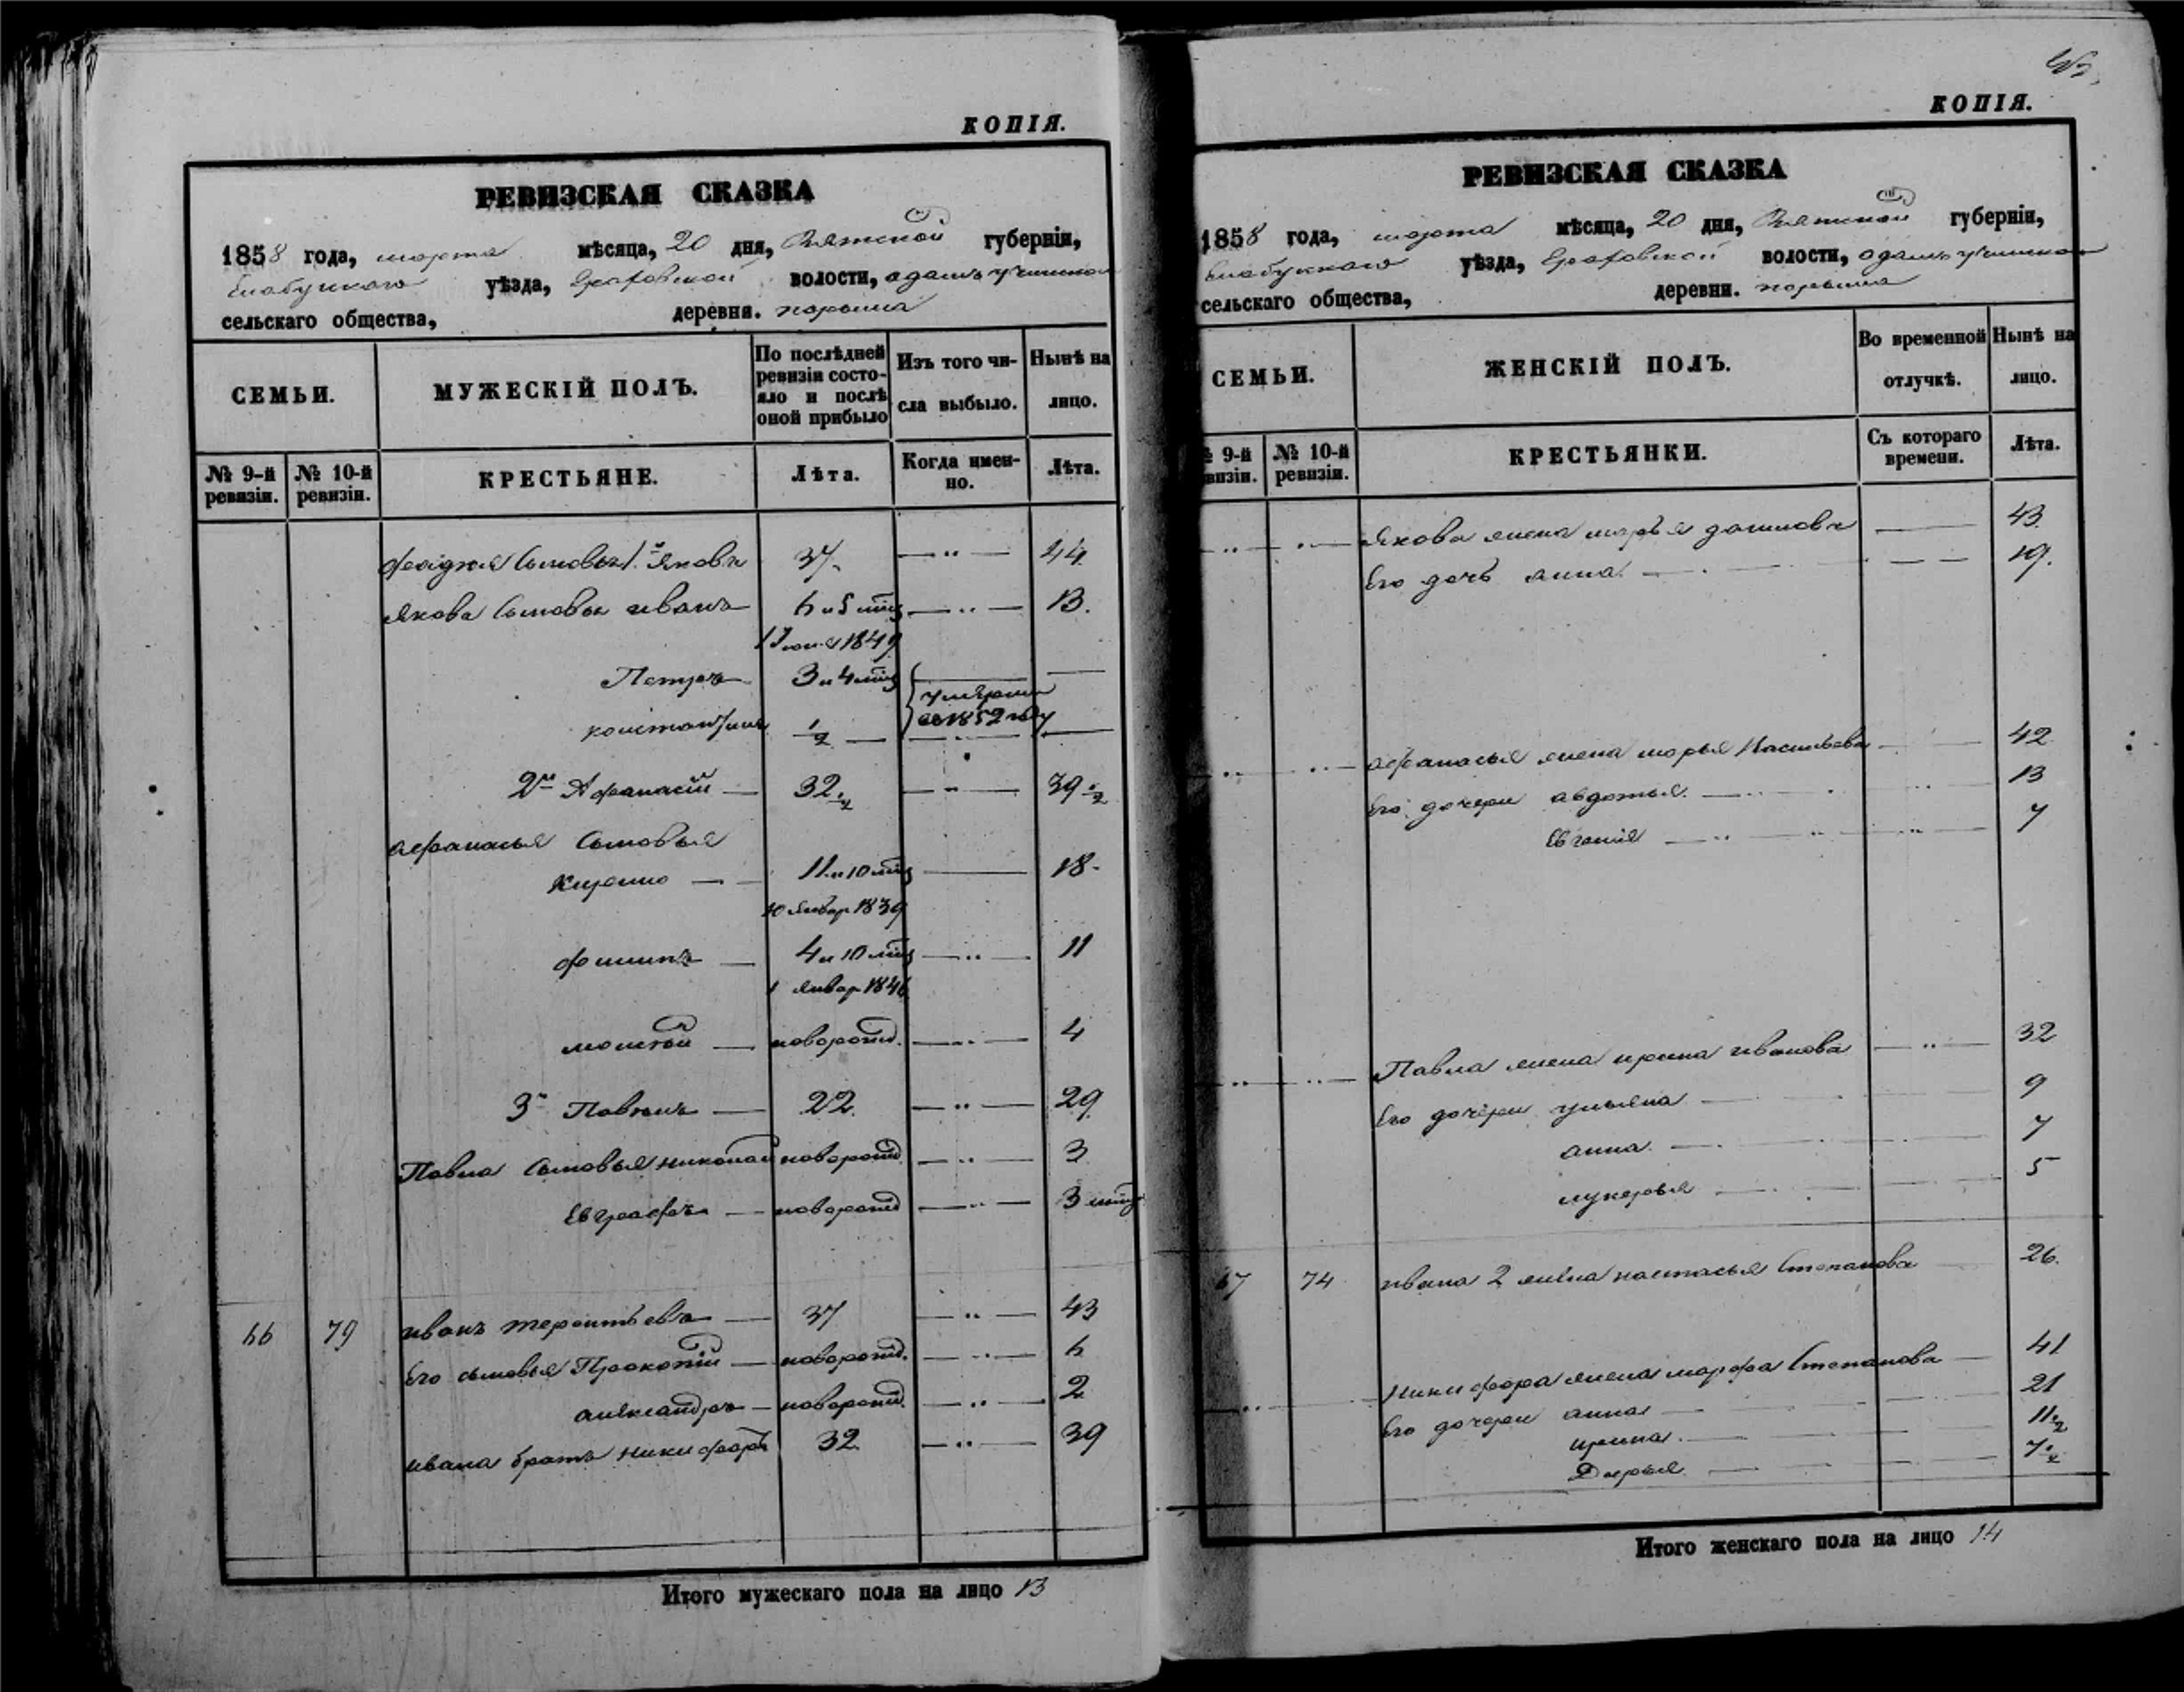 КОПІЯ.
РЕВИЗСКАЯ СКАЗКА
1858 года, марта мѣсяца, 20 дня, Вятской губерніи,
Елабужскаго уѣзда, волости,
сельскаго общества, деревни.
СЕМЬИ.
МУЖЕСКІЙ ПОЛЪ.
По послѣдней ревизіи состояло и послѣ оной прибыло
Изъ того числа выбыло.
Нынѣ на лицо.
№ 9-й ревизіи.
№ 10-й ревизіи.
КРЕСТЬЯНЕ.
Лѣта.
Когда именно.
Лѣта.
Сыновья 1й Яковъ 37 44
Якова Сыновья иванъ 13.
Петръ
константинъ ½
умерли
въ 1852 году
2й Афанасій 32½ 39½
афанасья Сыновья
11 и 10 18
10 Январ 1839
филипъ 4 и 10 11
1 Январ 1846
новорожд. 4
3й Павелъ 22. 29
Павла Сыновья николай новорожд 3
Евграфъ новорожд 3
66 79 иванъ терентьевъ 37 43
Его сыновья Прокопій новорожд. 6
александръ новорожд. 2
ивана братъ никифоръ 32 39
Итого мужескаго пола на лицо 13
КОПІЯ.
РЕВИЗСКАЯ СКАЗКА
1858 года, марта мѣсяца, 20 дня, Вятской губерніи,
Елабужскаго уѣзда, волости,
сельскаго общества, деревни.
СЕМЬИ.
ЖЕНСКІЙ ПОЛЪ.
Во временной отлучкѣ.
Нынѣ на лицо.
№ 9-й ревизіи.
№ 10-й ревизіи.
КРЕСТЬЯНКИ.
Съ котораго времени.
Лѣта.
Якова жена марья 43.
Его дочь анна 19.
афанасья жена марья 42
Его дочери авдотья 13
Евгенія 7
Павла жена ирина иванова 32
Его дочери ульяна 9
анна 7
лукерья 5
67 74 ивана 2 жена настасья Степанова 26.
Никифора жена марфа Степанова 41
Его дочери анна 21
ирина 11½
Дарья 7½
Итого женскаго пола на лицо 14